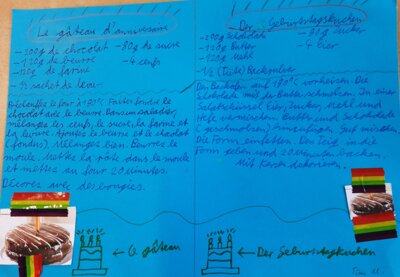 Le gâteau d'anniversaire
-200g de chocolat -80g de sucre
-120g de beurre -4 œufs
-120g de farine
-½ sachet de levure
Préchauffez le four à 180°C. Faites fondre le
chocolat avec le beurre. Dans un saladier,
mélangez les œufs, le sucre, la farine et
la levure. Ajoutez le beurre et le chocolat
(fondus). Mélangez bien. Beurrez le
moule. Mettez la pâte dans le moule
et mettez au four 20 minutes.
Décorez avec des bougies.
← Le gâteau
Der Geburtstagskuchen
-200g Schokolade -80g Zucker
-120g Butter -4 Eier
-120g Mehl
-½ (Tüte) Backpulver
Den Backofen auf 180°C vorheizen. Die
Schokolade mit der Butter schmelzen. In einer
Salatschüssel Eier, Zucker, Mehl und
Hefe vermischen. Butter und Schokolade
(geschmolzen) hinzufügen. Gut mischen.
Die Form einfetten. Den Teig in die
Form geben und 20 Minuten backen.
Mit Kerzen dekorieren.
← Der Geburtstagskuchen